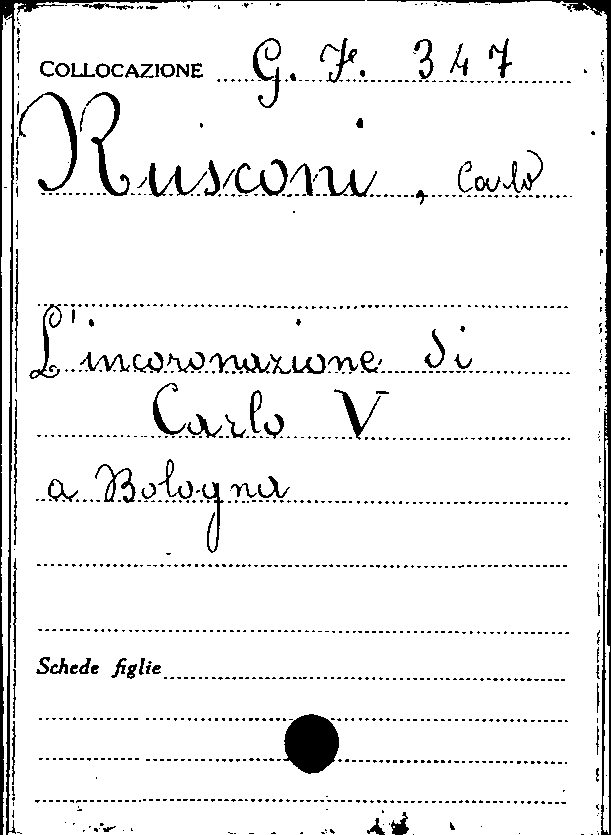 COLLOCAZIONE G. F. 347
Rusconi, Carlo
L'incoronazione di
Carlo V
a Bologna
Schede figlie